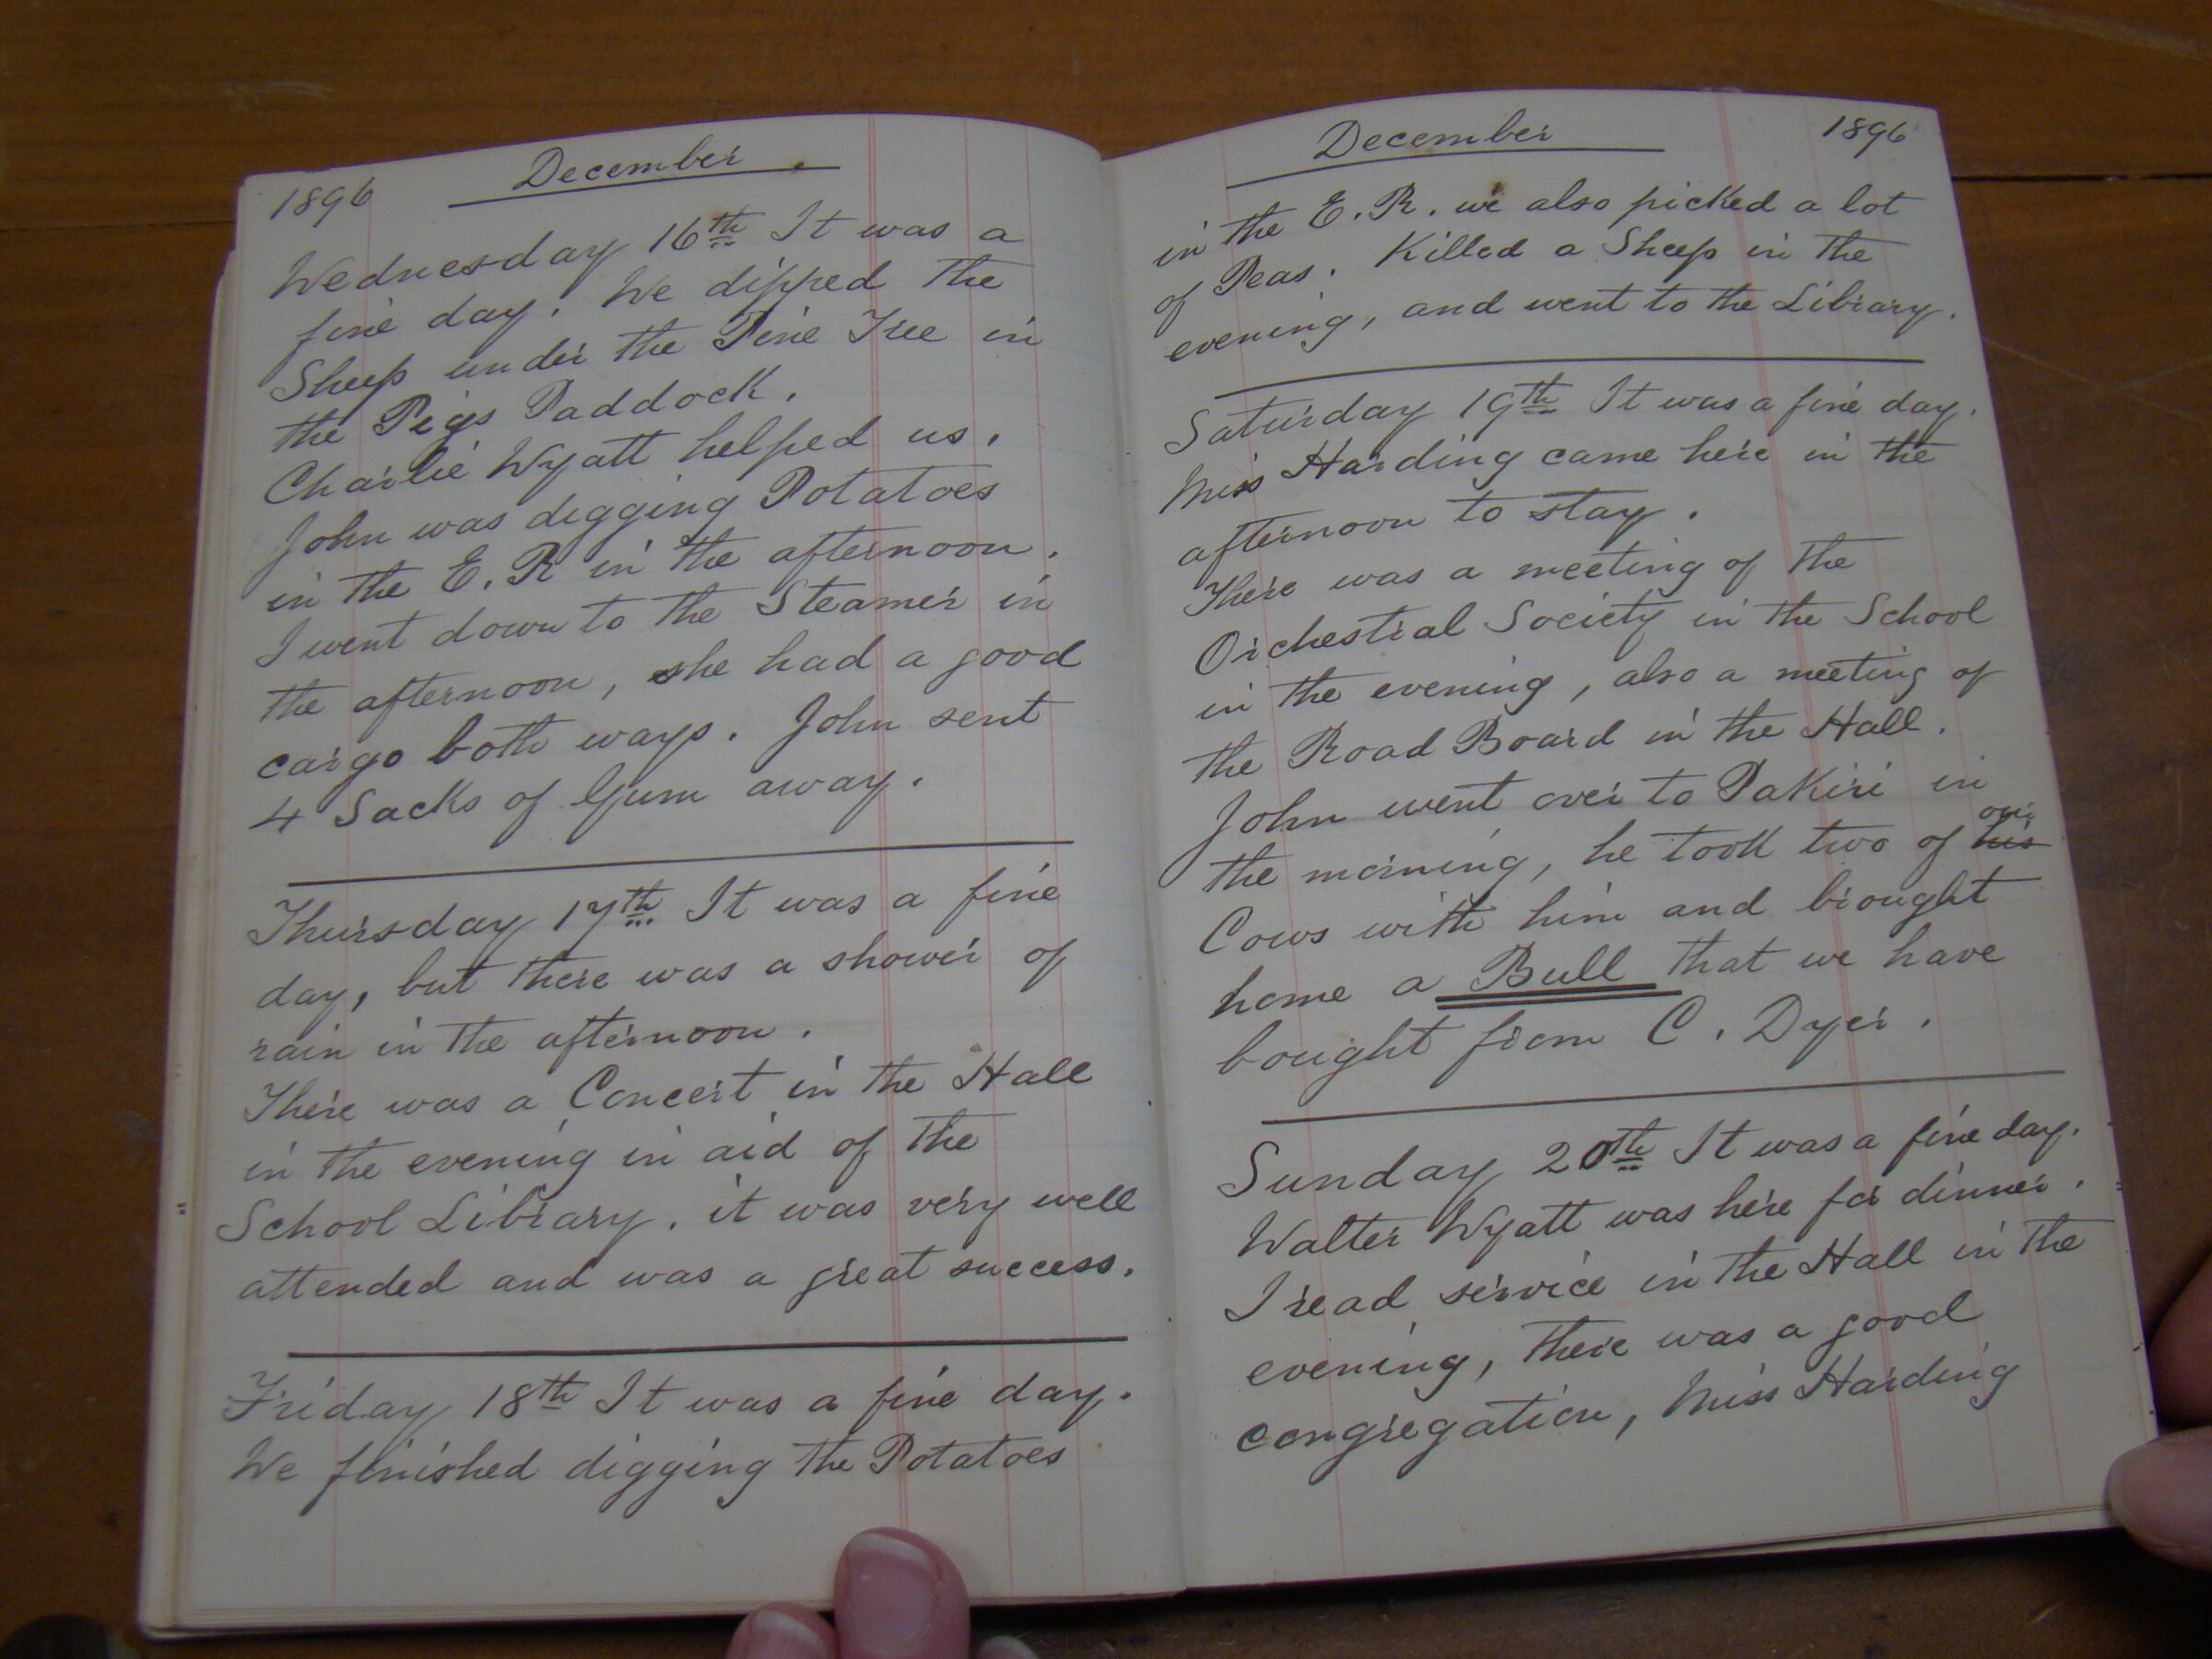 1896 December
Wednesday 16th It was a
fine day. We dipped the
Sheep under the Pine Tree in
the Pigs Paddock.
Charlie Wyatt helped us.
John was digging Potatoes
in the E. R in the afternoon.
I went down to the Steamer in
the afternoon, she had a good
cargo both ways. John sent
4 Sacks of Gum away.
Thursday 17th It was a fine
day, but there was a shower of
rain in the afternoon.
There was a Concert in the Hall
in the evening in aid of the
School Library. it was very well
attended and was a great success.
Friday 18th It was a fine day.
We finished digging the Potatoes
December 1896
in the E. R. we also picked a lot
of Peas. Killed a Sheep in the
evening, and went to the Library.
Saturday 19th It was a fine day.
Miss Harding came here in the
afternoon to stay.
There was a meeting of the
Orchestral Society in the School
in the evening, also a meeting of
the Road Board in the Hall.
John went over to Pakiri in
our
the morning, he took two of his
Cows with him and brought
home a Bull that we have
bought from C. Dyer.
Sunday 20th It was a fine day.
Walter Wyatt was here for dinner.
I read service in the Hall in the
evening, there was a good
congregation, Miss Harding